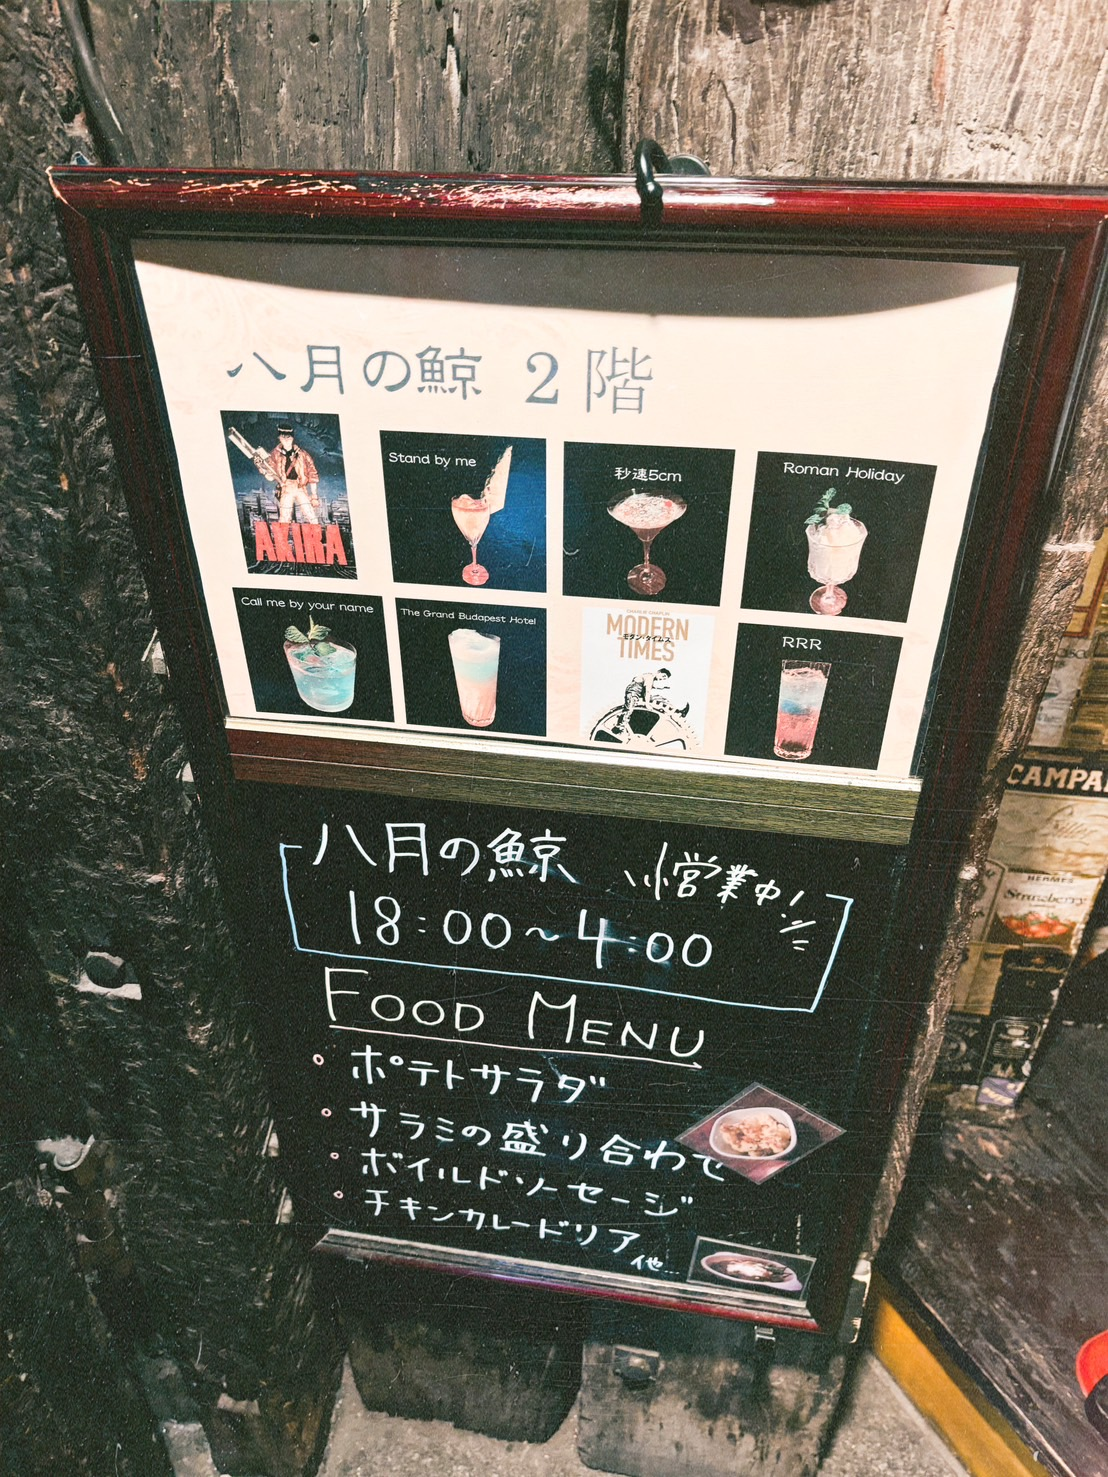 八月の鯨 2階
AKIRA
Stand by me
秒速5cm
Roman Holiday
Call me by your name
The Grand Budapest Hotel
CHARLIE CHAPLIN
MODERN
モダン・タイムス
TIMES
RRR
八月の鯨 営業中!
18:00~4:00
FOOD MENU
・ポテトサラダ
・サラミの盛り合わせ
・ボイルドソーセージ
・チキンカレードリア
他...
CAMPA
HERMES
Strawberry